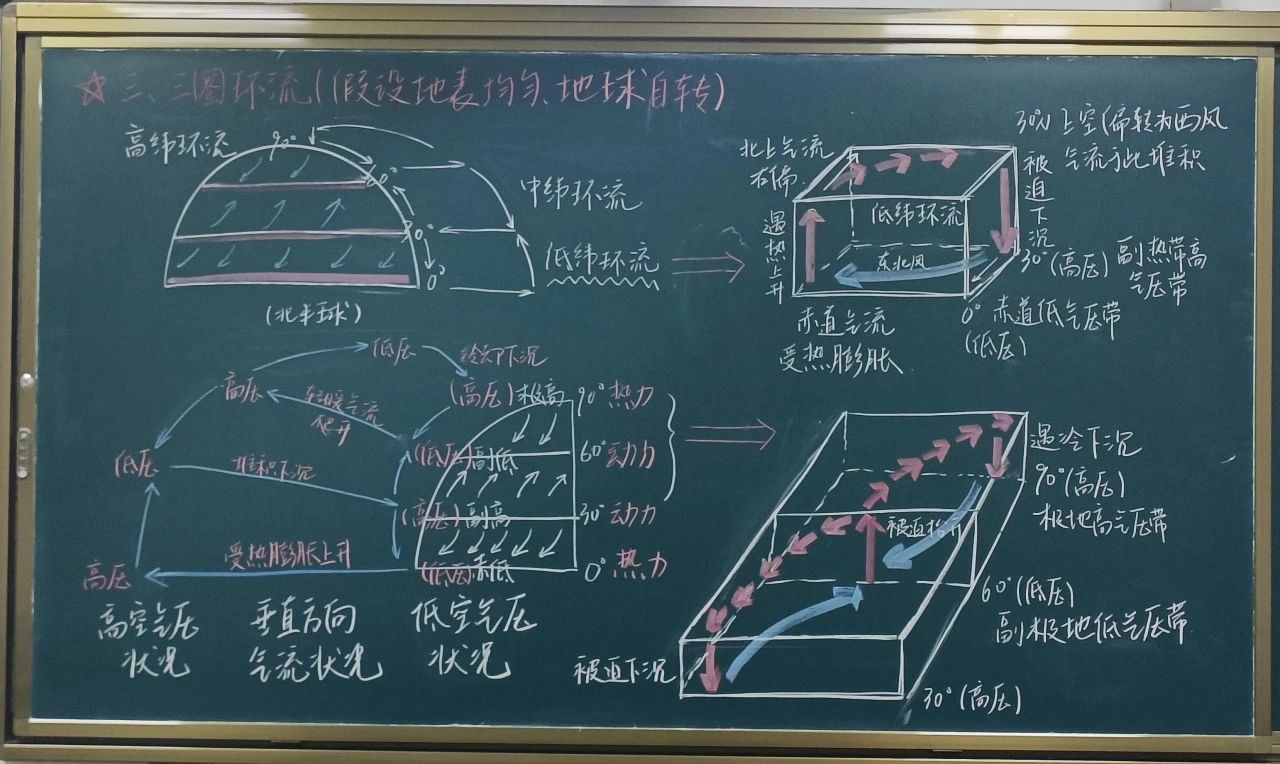 ☆三、三圈环流(假设地表均匀、地球自转)
高纬环流
90°
60°
30°
0°
中纬环流
低纬环流
(北半球)
北上气流
右偏
30°N上空(偏转为西风
气流于此堆积
被迫下沉
低纬环流
遇热上升
东北风
30°(高压)副热带高
气压带
0°赤道低气压带
(低压)
赤道气流
受热膨胀
低压
冷却下沉
高压
轻暖气流
爬升
(高压)极高
90°热力
低压
堆积下沉
(低压)副低
60°动力
(高压)副高
30°动力
高压
受热膨胀上升
(低压)赤低
0°热力
高空气压
状况
垂直方向
气流状况
低空气压
状况
遇冷下沉
90°(高压)
极地高气压带
被迫抬升
60°(低压)
副极地低气压带
被迫下沉
30°(高压)